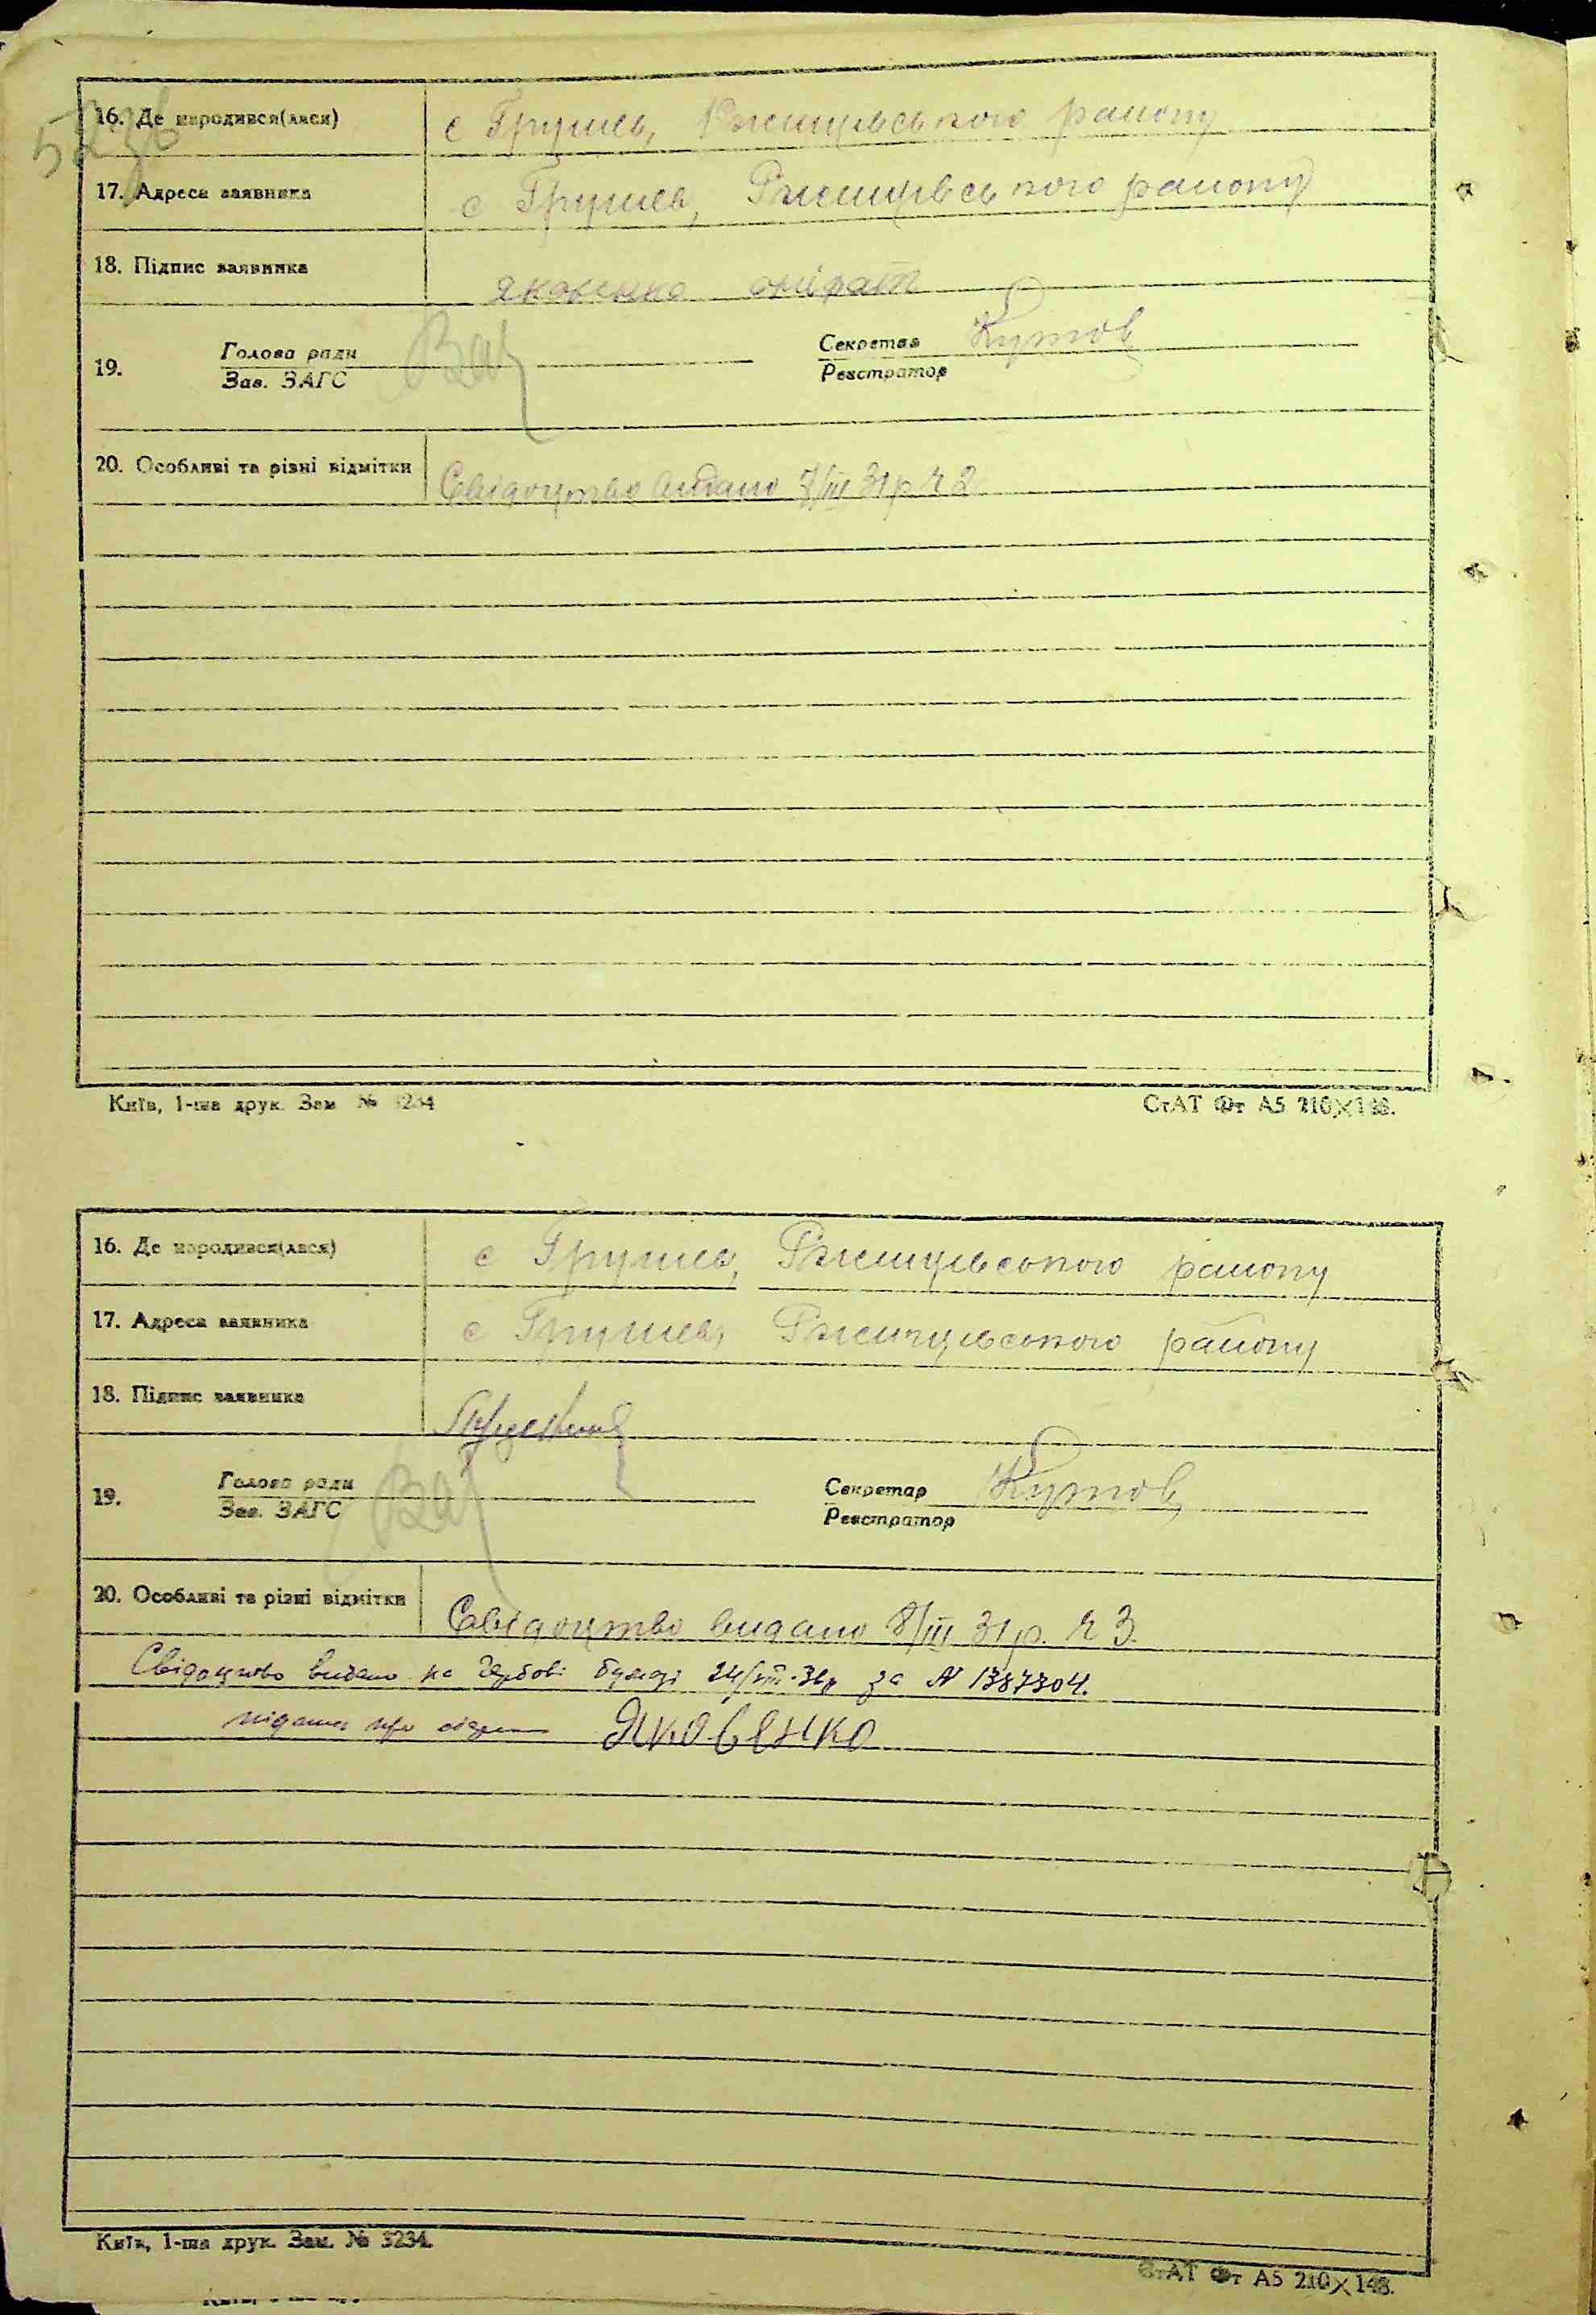 52 зв
16. Де народився(лася) с Грушев, Ржищівського району
17. Адреса заявника с Грушев, Ржищівського району
18. Підпис заявника Яковенко
19. Голова ради Секретар Кутов
Зав. ЗАГС Реєстратор
20. Особливі та різні відмітки Свідоцтво видано 7/III 31 р Ч 2
Київ, 1-ша друк. Зам № 3234
СтАТ Фт А5 210×148.
16. Де народився(лася) с Грушев, Ржищівського району
17. Адреса заявника с Грушев, Ржищівського району
18. Підпис заявника
19. Голова ради Секретар Кутов
Зав. ЗАГС Реєстратор
20. Особливі та різні відмітки Свідоцтво видано 8/III 31 р. Ч 3.
Свідоцтво видано на гербові бумазі за № 1387304.
Яковенко
Київ, 1-ша друк. Зам. № 3234.
СтАТ Фт А5 210×148.